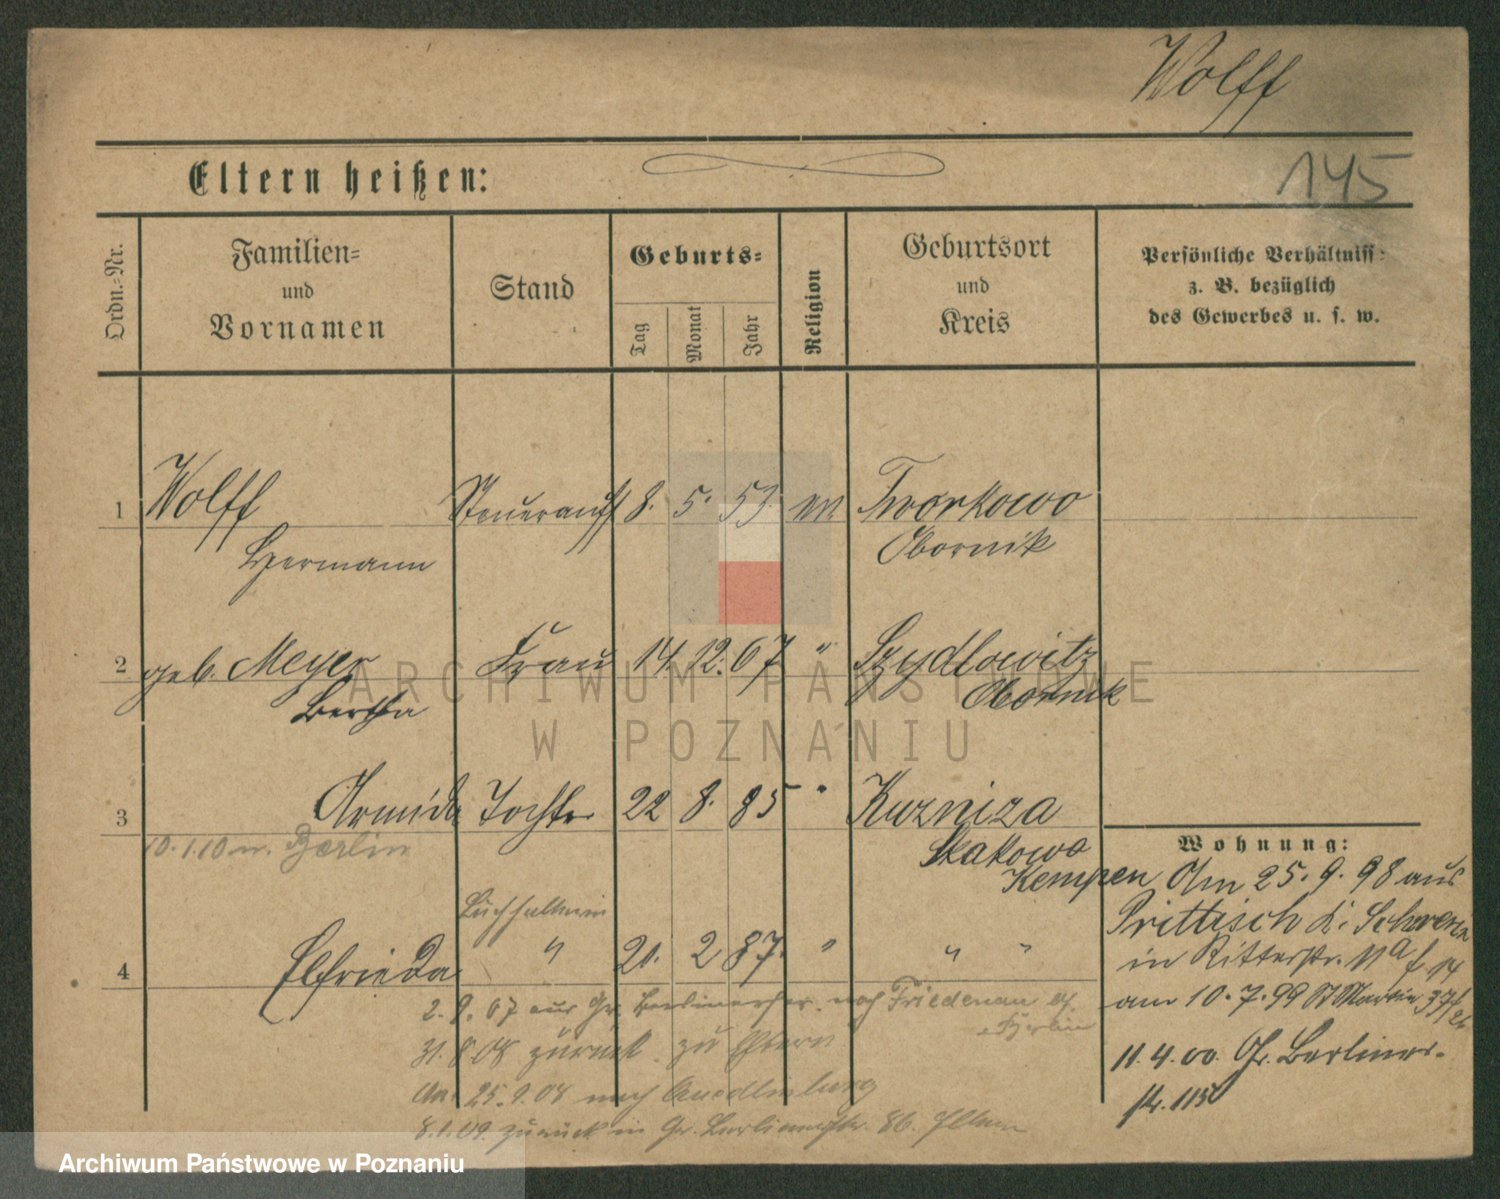 Wolff
145
Eltern heißen:
Ordn.-Nr.
Familien-
und
Vornamen
Stand
Geburts-
Tag
Monat
Jahr
Religion
Geburtsort
und
Kreis
Persönliche Verhältniss
z. B. bezüglich
des Gewerbes u. s. w.
1 Wolff Steuerauf 8. 5. 53. Tworkowo
Hermann Obornik
2 geb. Meyer Frau 14. 12. 67 " Szydlowitz
Bertha Obornik
3 Armida Tochter 22 8. 85 " Kuzniza
10.1.10 n. Berlin Skakowo
Kempen
Buchhalterin
4 Elfrieda " 21. 2 87. " " "
2. 9. 07 aus Gr. Berlinerstr. nach Friedenau
Berlin
31. 8. 08 zurück zu Eltern
25. 9. 08 nach Quedlinburg
8. 1. 09. zurück in Gr. Berlinerstr. 86. Eltern
Wohnung:
Am 25. 9. 98 aus
Prittisch K. Schwerin
in Ritterstr. 11a
am 10. 7. 99 St Martin 37
11. 4. 00. Gr. Berliner-
str. 113
ARCHIWUM PAŃSTWOWE
W POZNANIU
Archiwum Państwowe w Poznaniu